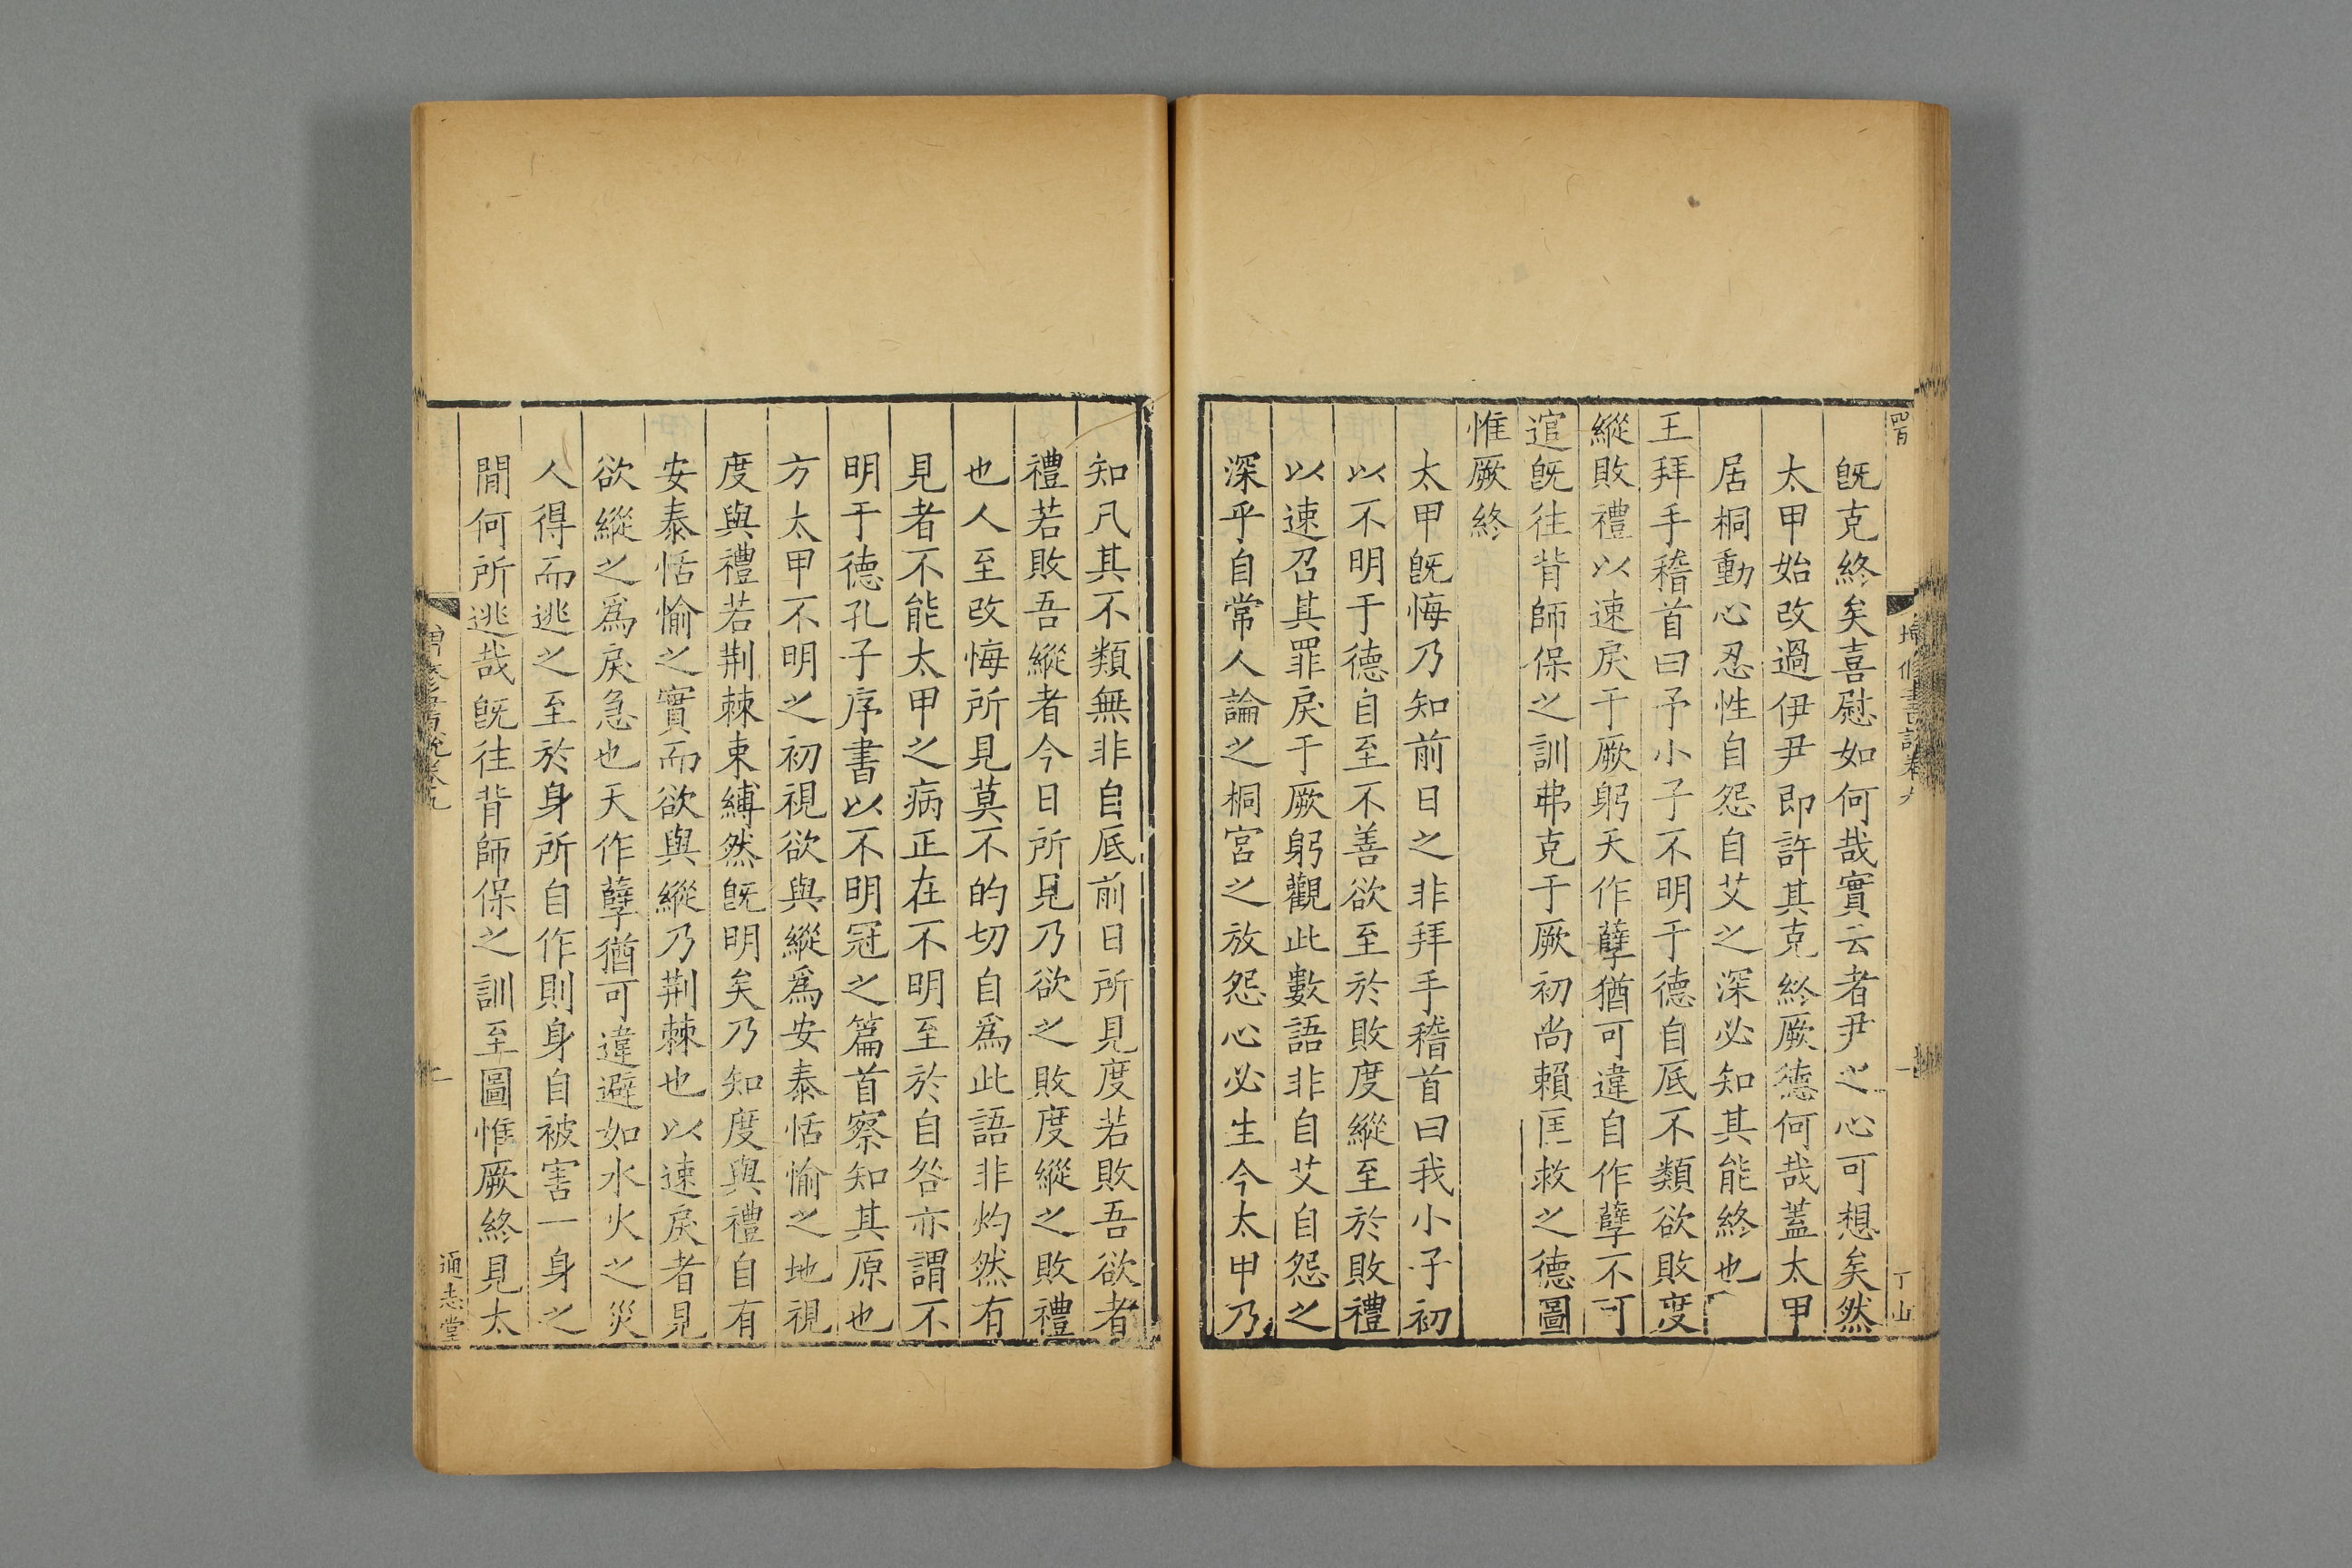 旣克終矣喜慰如何哉實云者尹之心可想矣然
太甲始改過伊尹即許其克終厥德何哉蓋太甲
居桐動心忍性自怨自艾之深必知其能終也
王拜手稽首曰予小子不明于德自厎不類欲敗度
縱敗禮以速戾于厥躬天作孽猶可違自作孽不可
逭旣往背師保之訓弗克于厥初尚賴匡救之德圖
惟厥終
太甲旣悔乃知前日之非拜手稽首曰我小子初
以不明于德自至不善欲至於敗度縱至於敗禮
以速召其罪戾于厥躬觀此數語非自艾自怨之
深乎自常人論之桐宮之放怨心必生今太甲乃
知凡其不類無非自厎前日所見度若敗吾欲者
禮若敗吾縱者今日所見乃欲之敗度縱之敗禮
也人至改悔所見莫不的切自爲此語非灼然有
見者不能太甲之病正在不明至於自咎亦謂不
明于德孔子序書以不明冠之篇首察知其原也
方太甲不明之初視欲與縱爲安泰恬愉之地視
度與禮若荆棘束縛然旣明矣乃知度與禮自有
安泰恬愉之實而欲與縱乃荆棘也以速戾者見
欲縱之爲戾急也天作孽猶可違避如水火之災
人得而逃之至於身所自作則身自被害一身之
閒何所逃哉旣往背師保之訓至圖惟厥終見太
通志堂